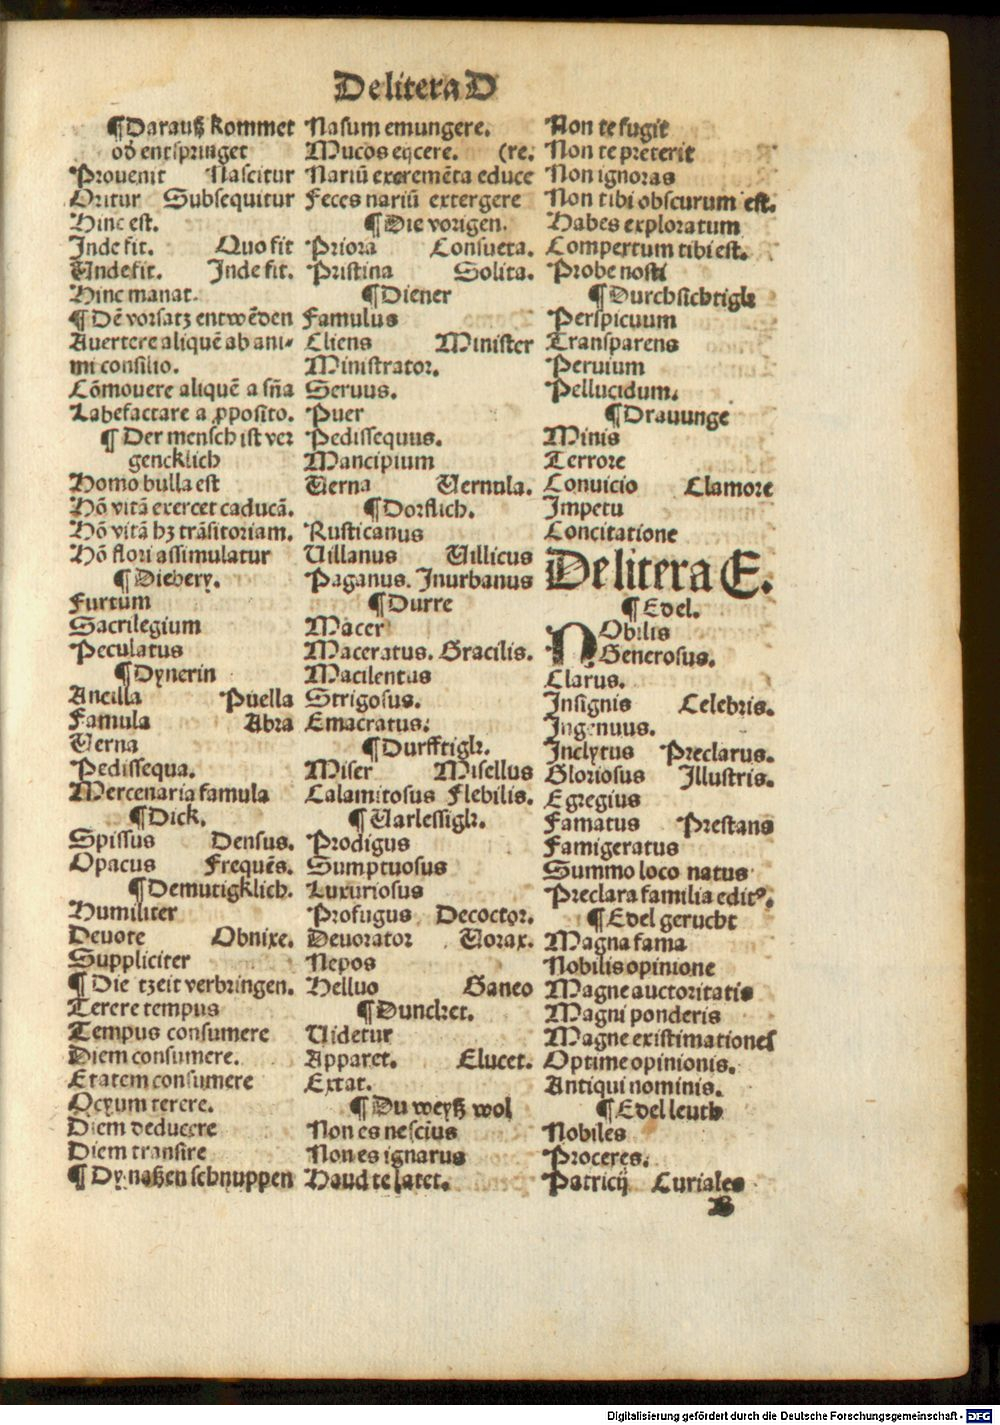 De litera D
¶ Darauß kommet
od̕ entspringet
Prouenit Nascitur
Oritur Subsequitur
Hinc est.
Inde fit. Quo fit
Unde fit. Inde fit.
Hinc manat.
¶ Dē vorsatz entwēden
Auertere aliquē ab ani⸗
mi consilio.
Cōmouere aliquē a sñia
Labefactare a ꝓposito.
¶ Der mensch ist ver
gencklich
Homo bulla est
Hō vitā exercet caducā.
Hō vitā hꝫ trāsitoriam.
Hō flori assimulatur
¶ Diebery.
Furtum
Sacrilegium
Peculatus
¶ Dynerin
Ancilla Puella
Famula Abra
Verna
Pedissequa.
Mercenaria famula
¶ Dick.
Spissus Densus.
Opacus Frequēs.
¶ Demutigklich.
Humiliter
Deuote Obnixe.
Suppliciter
¶ Die tzeit verbringen.
Terere tempus
Tempus consumere
Diem consumere.
Etatem consumere
Ocyum terere.
Diem deducere
Diem transire
¶ Dy naßen schnuppen
Nasum emungere.
Mucos eijcere. (re.
Nariū excremēta educe
Feces nariū extergere
¶ Die vorigen.
Priora Consueta.
Pristina Solita.
¶ Diener
Famulus
Cliens Minister
Ministrator.
Seruus.
Puer
Pedissequus.
Mancipium
Verna Vernula.
¶ Dorflich.
Rusticanus
Uillanus Uillicus
Paganus. Inurbanus
¶ Durre
Macer
Maceratus. Gracilis.
Macilentus
Strigosus.
Emacratus.
¶ Durfftigk.
Miser Misellus
Calamitosus Flebilis.
¶ Varlessigk.
Prodigus
Sumptuosus
Luxuriosus
Profugus Decoctor.
Deuorator Vorax.
Nepos
Helluo Ganeo
¶ Duncket.
Uidetur
Apparet. Elucet.
Extat.
¶ Du weyß wol
Non es nescius
Non es ignarus
Haud te latet.
Non te fugit
Non te preterit
Non ignoras
Non tibi obscurum est.
Habes exploratum
Compertum tibi est.
Probe nosti
¶ Durchsichtigk
Perspicuum
Transparens
Peruium
Pellucidum.
¶ Drauunge
Minis
Terrore
Conuicio Clamore
Impetu
Concitatione
De litera E.
¶ Edel.
NObilis
Generosus.
Clarus.
Insignis Celebris.
Ingenuus.
Inclytus Preclarus.
Gloriosus Illustris.
Egregius
Famatus Prestans
Famigeratus
Summo loco natus
Preclara familia editꝰ.
¶ Edel gerucht
Magna fama
Nobilis opinione
Magne auctoritatis
Magni ponderis
Magne existimationes
Optime opinionis.
Antiqui nominis.
¶ Edel leuth
Nobiles
Proceres.
Patricij Curiales
B
Digitalisierung gefördert durch die Deutsche Forschungsgemeinschaft - DFG